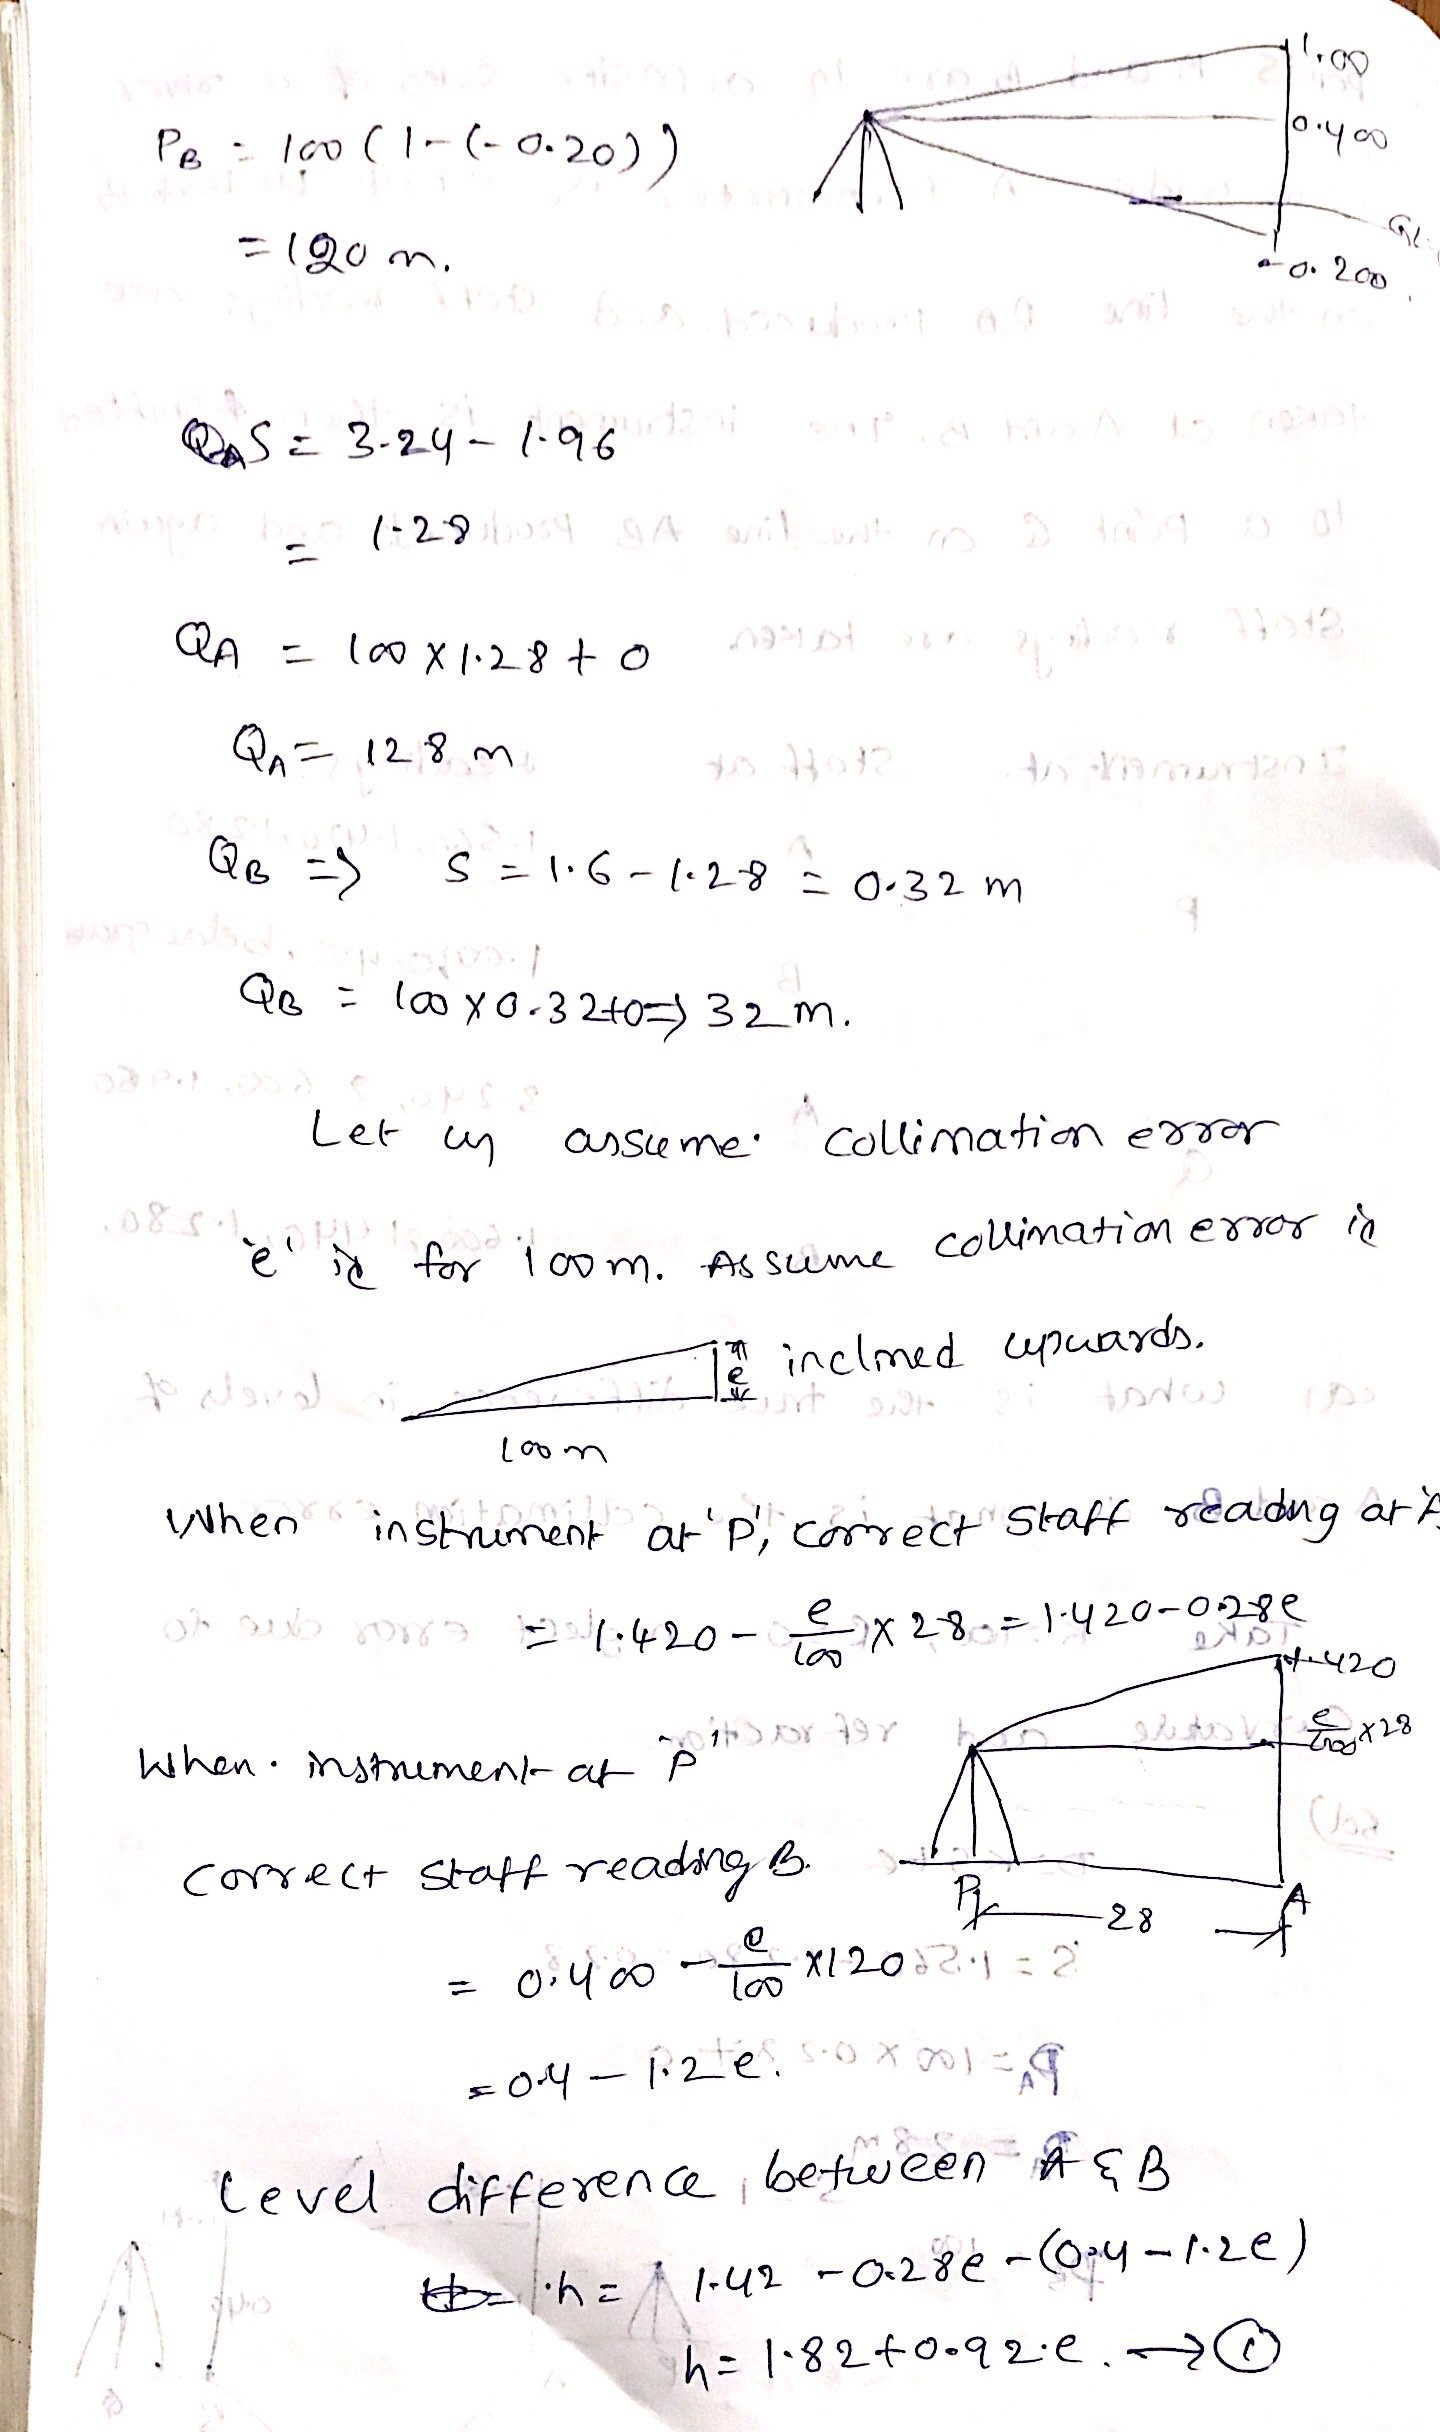 1.00
P_B = 100 (1-(-0.20))
0.400
GL
= 120 m.
-0.200
Q_A S = 3.24 - 1.96
= 1.28
Q_A = 100 x 1.28 + 0
Q_A = 128 m
Q_B => S = 1.6 - 1.28 = 0.32 m
Q_B = 100 x 0.32+0=> 32 m.
Let us assume. collimation error
'e' is for 100m. Assume collimation error is
e inclined upwards.
100m
When instrument at 'P', correct staff reading at 'A
= 1.420 - e/100 x 28 = 1.420-0.28e
1.420
e/100 x28
When. instrument at 'P'
correct staff reading B.
P 28 A
= 0.400 - e/100 x120
= 0.4 - 1.2e.
Level difference between A & B
h = 1.42 - 0.28e -(0.4 - 1.2e)
h= 1.82+0.92.e. → ①